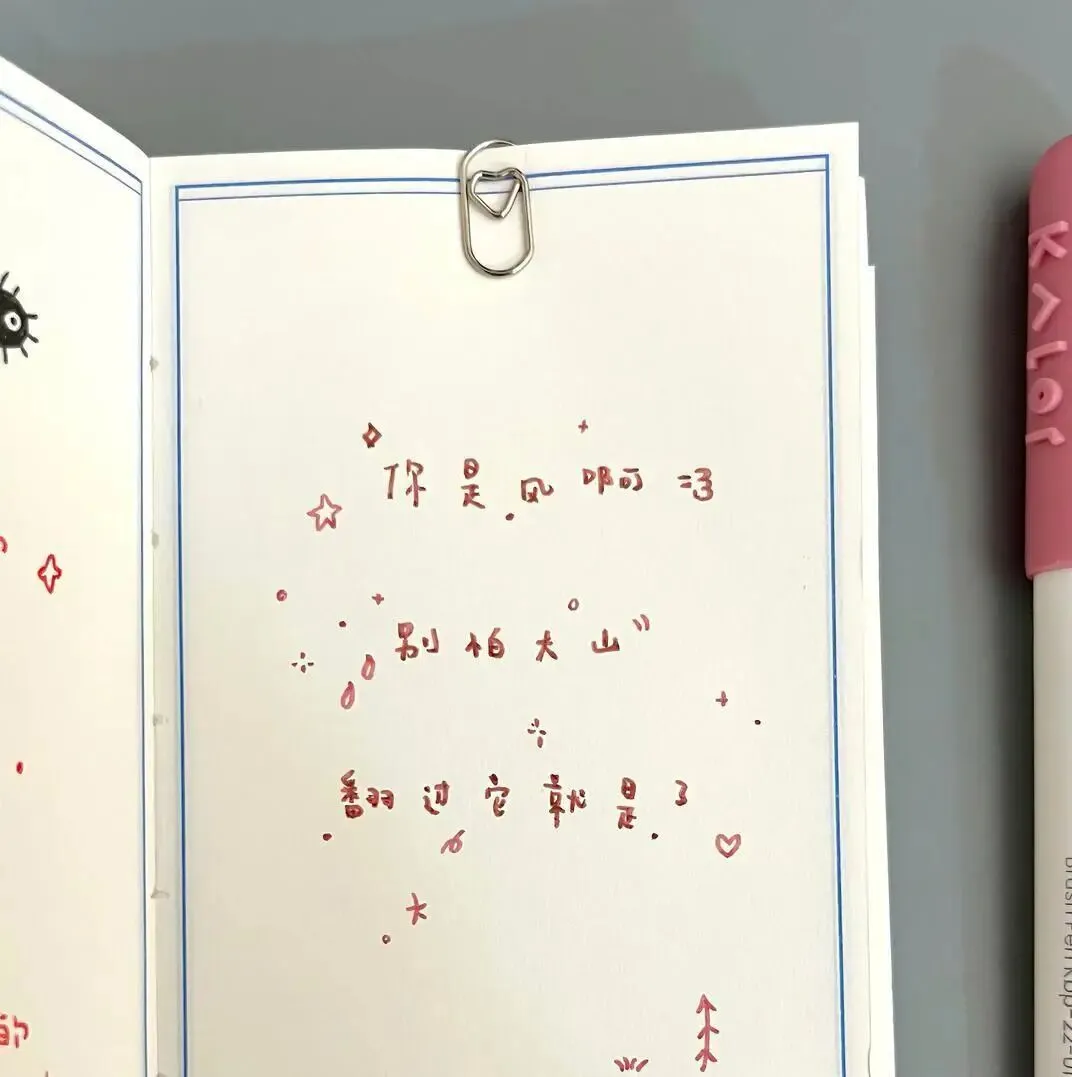 你是风啊 =3
别怕大山
翻过它就是了
的
KALOr
brush Pen kbp-22-0